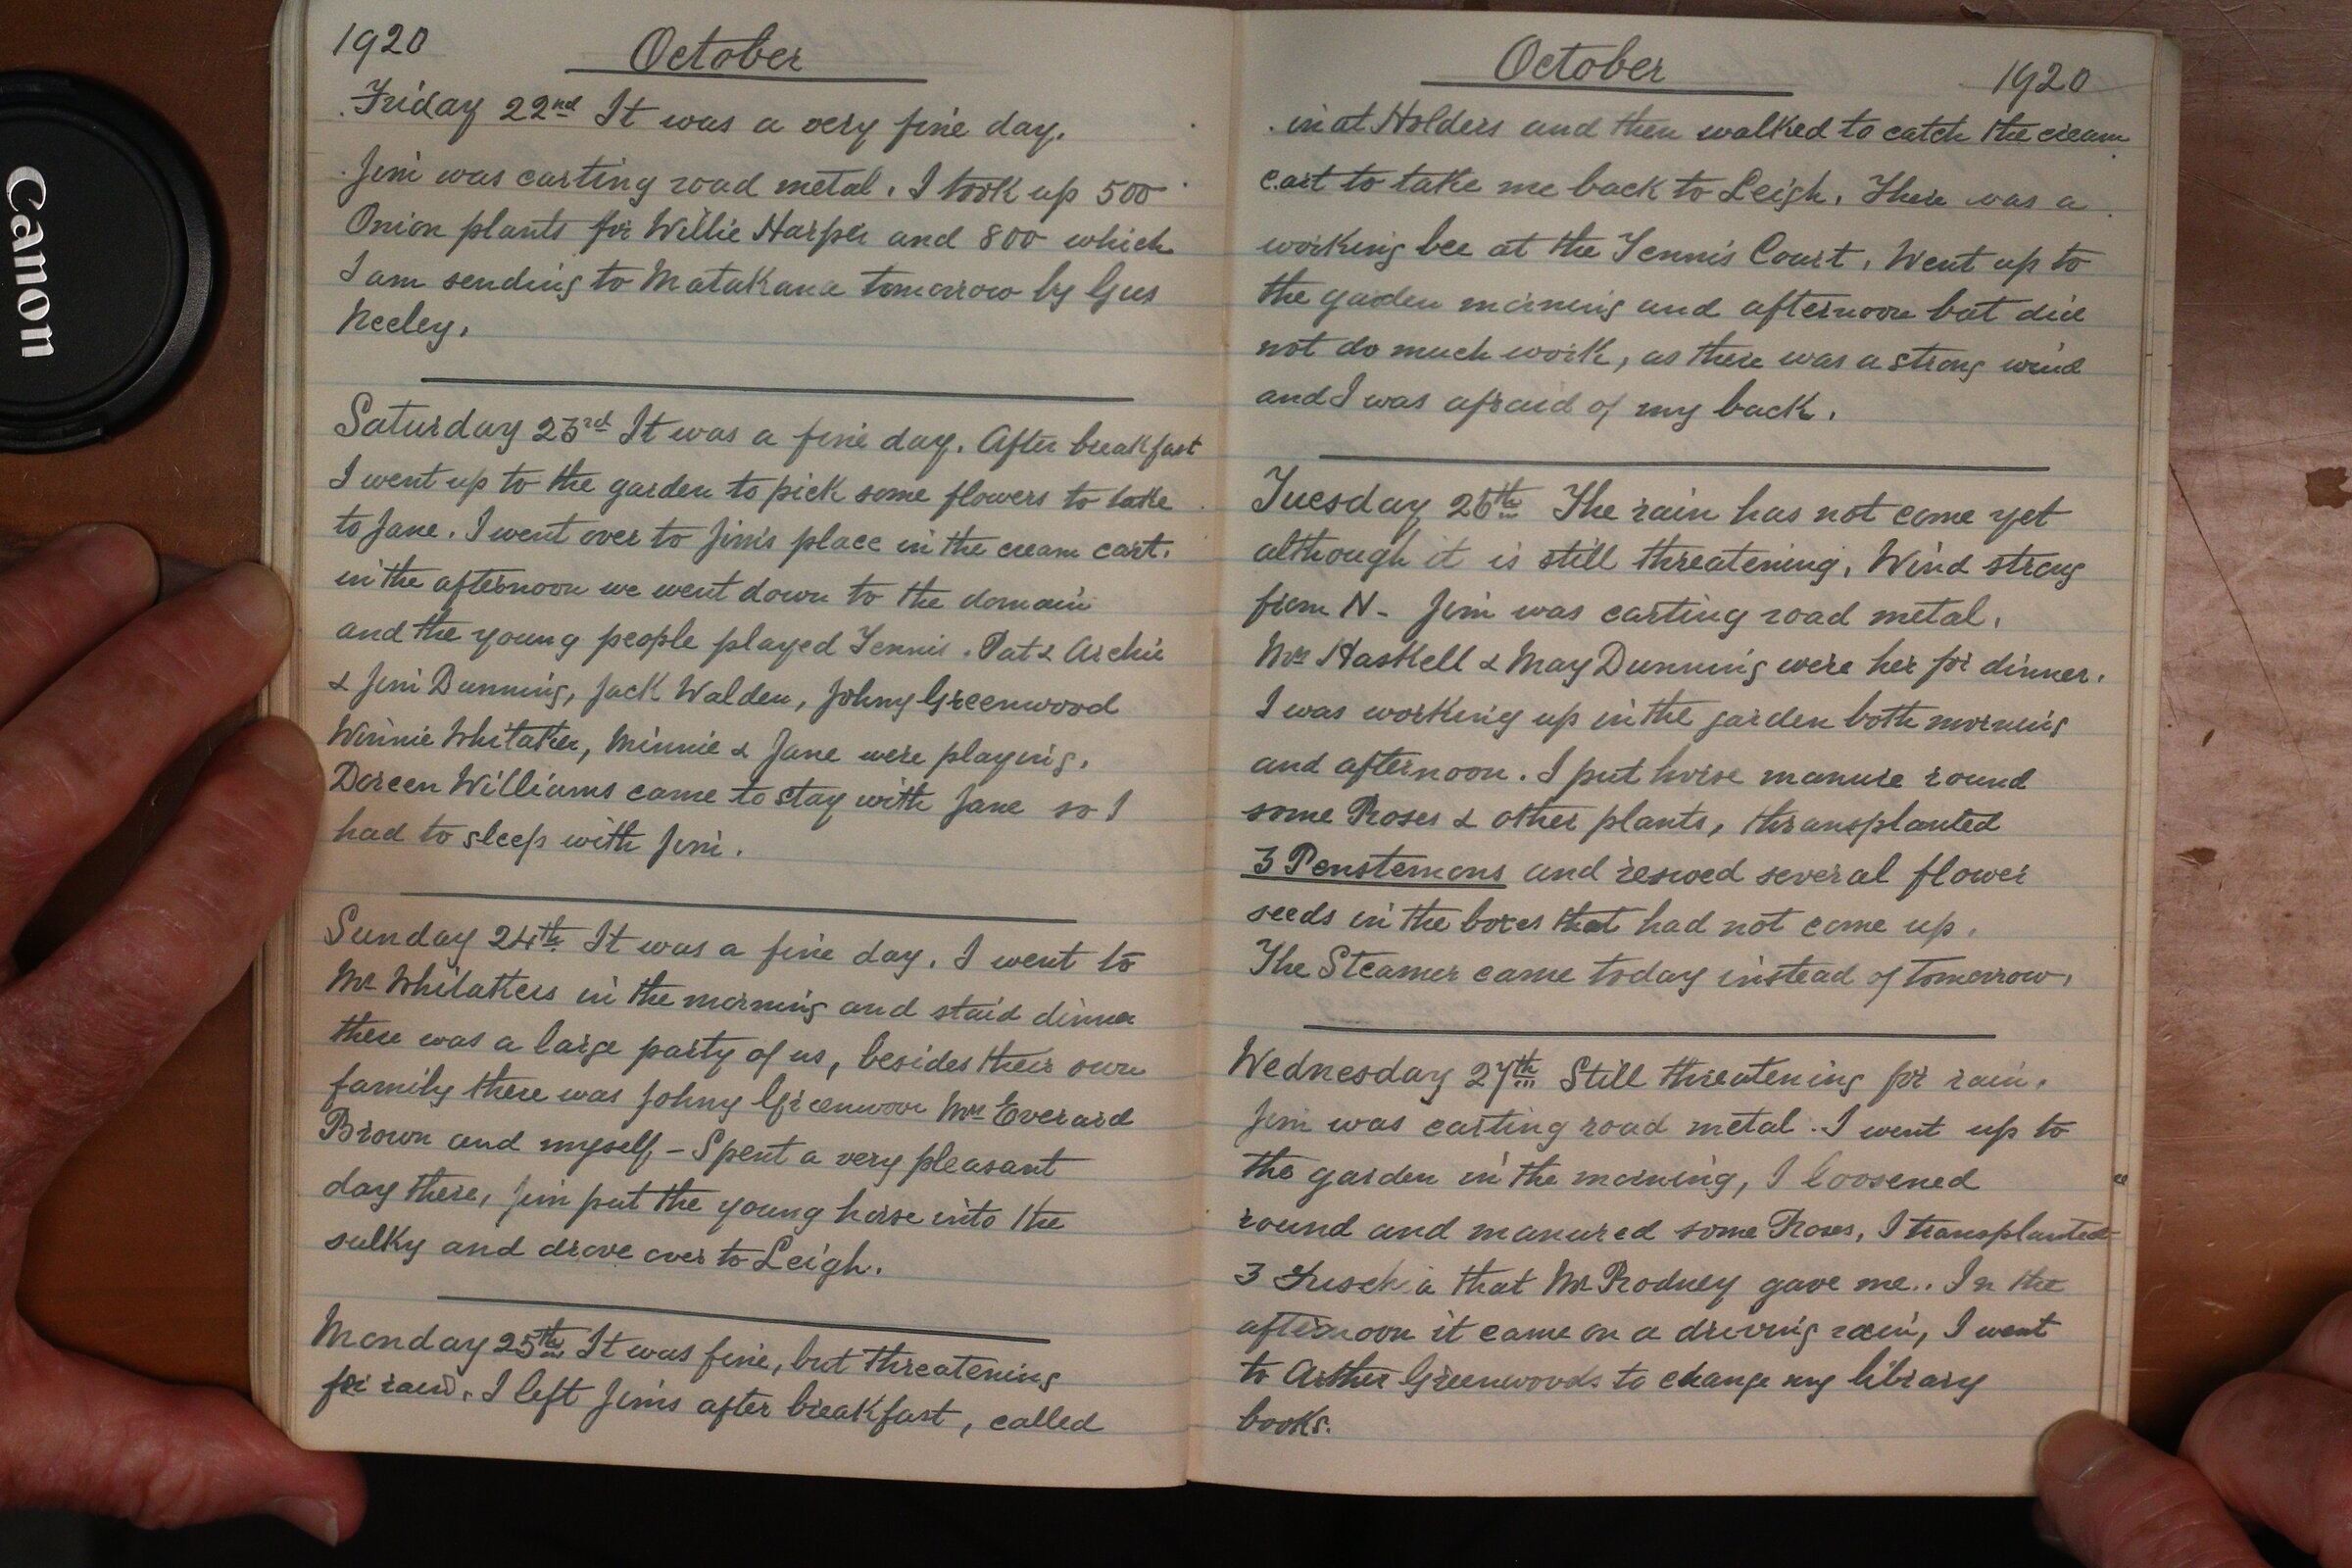 Canon
1920 October
Friday 22nd It was a very fine day.
Jim was carting road metal. I took up 500
Onion plants for Willie Harper and 800 which
I am sending to Matakana tomorrow by Gus
Neeley.
Saturday 23rd It was a fine day. After breakfast
I went up to the garden to pick some flowers to take
to Jane. I went over to Jim's place in the cream cart.
in the afternoon we went down to the domain
and the young people played Tennis. Pat & Archie
& Jim Dunning, Jack Walden, Johny Greenwood
Winnie Whitaker, Minnie & Jane were playing.
Doreen Williams came to stay with Jane so I
had to sleep with Jim.
Sunday 24th It was a fine day. I went to
Mr Whitakers in the morning and staid dinner
there was a large party of us, besides their own
family there was Johny Greenwood Mrs Everard
Brown and myself - Spent a very pleasant
day there, Jim put the young horse into the
sulky and drove over to Leigh.
Monday 25th It was fine, but threatening
for rain. I left Jims after breakfast, called
October 1920
in at Holders and then walked to catch the cream
cart to take me back to Leigh. There was a
working bee at the Tennis Court. Went up to
the garden morning and afternoon but did
not do much work, as there was a strong wind
and I was afraid of my back.
Tuesday 26th The rain has not come yet
although it is still threatening. Wind strong
from N- Jim was carting road metal.
Mrs Haskell & May Dunning were her for dinner.
I was working up in the garden both morning
and afternoon. I put horse manure round
some Roses & other plants, thransplanted
3 Penstemons and resowed several flower
seeds in the boxes that had not come up.
The Steamer came today instead of tomorrow.
Wednesday 27th Still threatening for rain.
Jim was carting road metal. I went up to
the garden in the morning, I loosened
round and manured some Roses, I transplanted
3 Fuschia that Mr Rodney gave me.. In the
afternoon it came on a driving rain, I went
to Arther Greenwoods to change my library
books.